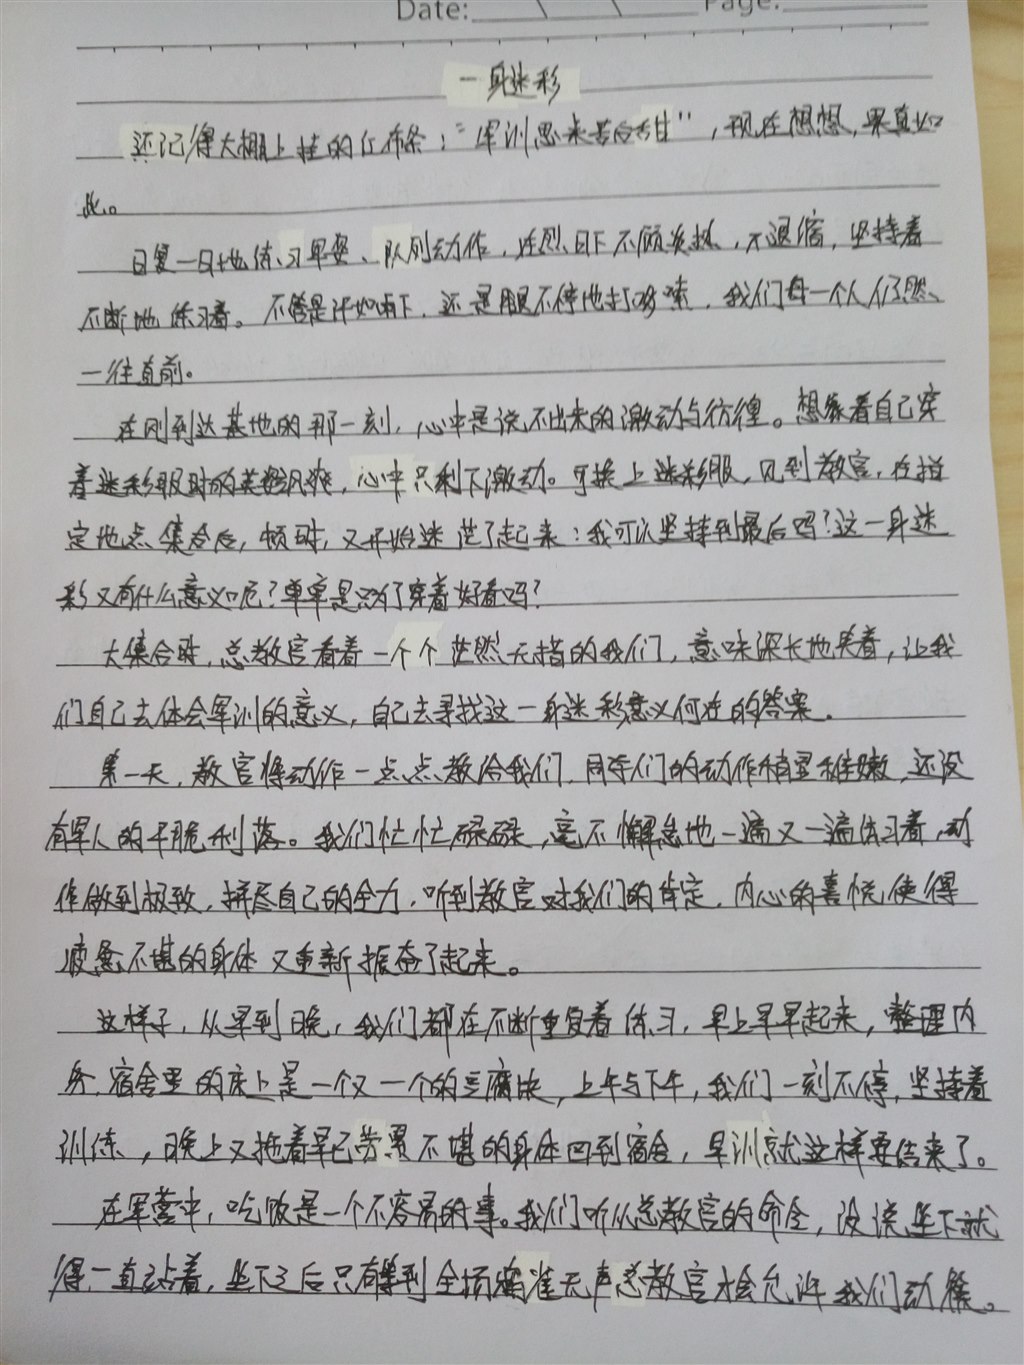 Date: Page:
一身迷彩
还记得大棚上挂的红布条：“军训思来苦后甜”，现在想想，果真如
此。
日复一日地练习军姿、队列动作，在烈日下不顾炎热，不退缩，坚持着
不断地练习着。不管是汗如雨下，还是腿不停地打哆嗦，我们每一个人仍然
一往直前。
在刚到达基地的那一刻，心中是说不出来的激动与彷徨。想象着自己穿
着迷彩服时的英姿飒爽，心中只剩下激动。可换上迷彩服，见到教官，在指
定地点集合后，顿时，又开始迷茫了起来：我可以坚持到最后吗？这一身迷
彩又有什么意义呢？单单是为了穿着好看吗？
大集合时，总教官看着一个个茫然无措的我们，意味深长地笑着，让我
们自己去体会军训的意义，自己去寻找这一身迷彩意义何在的答案。
第一天，教官将动作一点点教给我们，同学们的动作稍显稚嫩，还没
有军人的干脆利落。我们忙忙碌碌，毫不懈怠地一遍又一遍练习着，动
作做到极致，拼尽自己的全力，听到教官对我们的肯定，内心的喜悦使得
疲惫不堪的身体又重新振奋了起来。
这样子，从早到晚，我们都在不断重复着练习，早上早早起来，整理内
务，宿舍里的床上是一个又一个的豆腐块，上午与下午，我们一刻不停，坚持着
训练，晚上又拖着早已劳累不堪的身体回到宿舍，军训就这样要结束了。
在军营中，吃饭是一个不容易的事。我们听从总教官的命令，没说坐下就
得一直站着，坐下之后只有等到全场鸦雀无声总教官才会允许我们动筷。